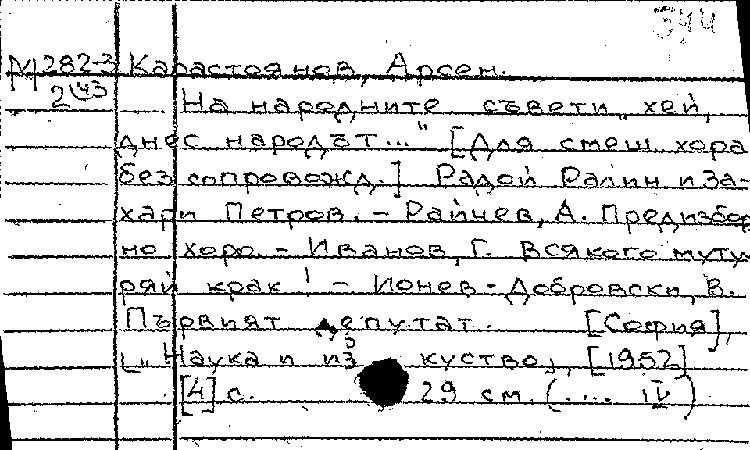 344
М 282-3 Карастоянов, Арсен.
2/43 На народните съвети „хей,
днес народът..." [Для смеш. хора
без сопровожд.] Радой Ралин и За-
хари Петров. – Райчев, А. Предизбор
но хоро. – Иванов, Г. Всякого муту-
ряй крак! – Ионев-Добровски, В.
Първият депутат. [София],
„Наука и изкуство„, [1952]
[4] с. 29 см. (.... IV)